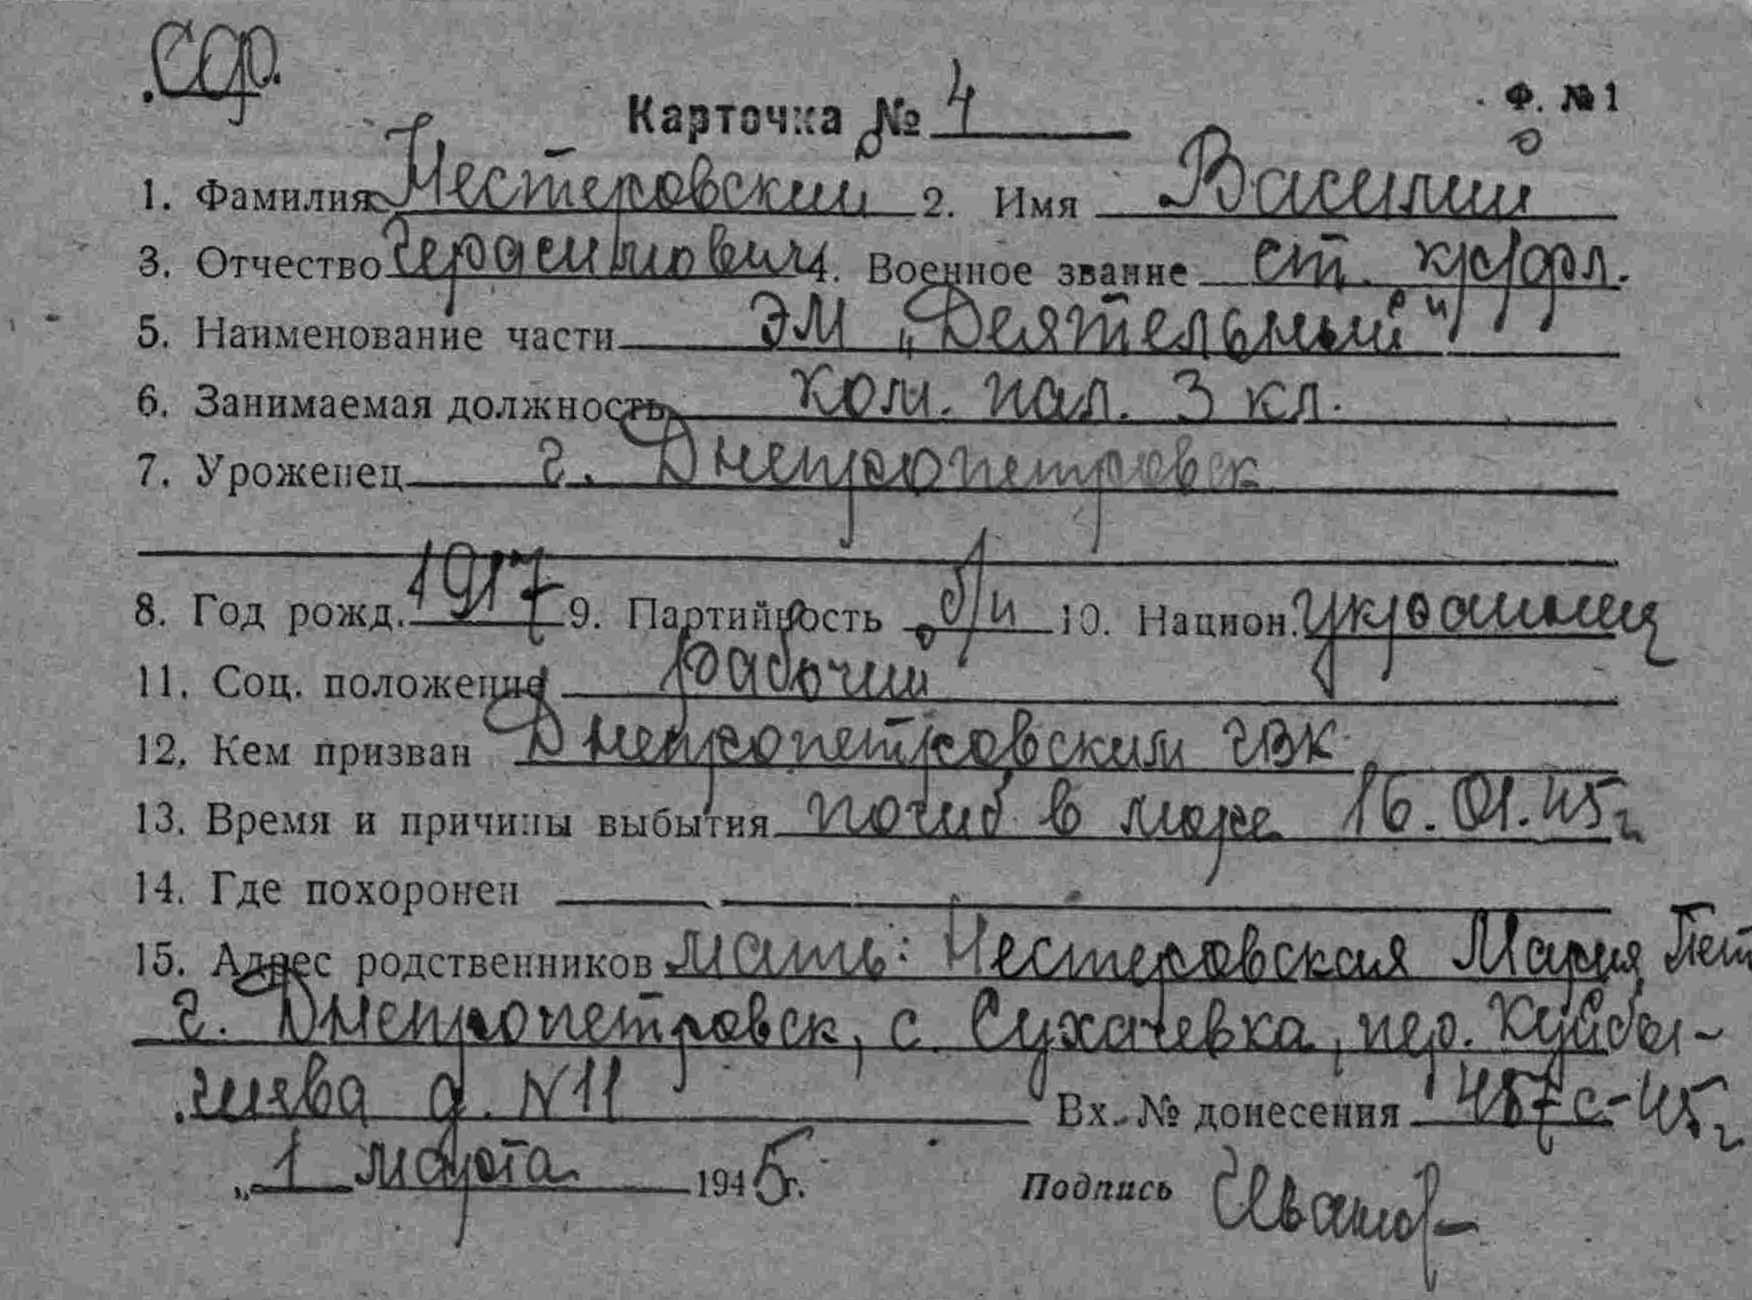 СФ.
Карточка № 4 Ф. № 1
1. Фамилия Нестеровский 2. Имя Василий
3. Отчество Герасимович 4. Военное звание ст. кр/фл.
5. Наименование части ЭМ „Деятельный"
6. Занимаемая должность ком. 3 кл.
7. Уроженец г. Днепропетровск
8. Год рожд. 1917 9. Партийность б/п 10. Национ. украинец
11. Соц. положение рабочий
12. Кем призван Днепропетровским ГВК
13. Время и причины выбытия погиб в море 16.01.45г
14. Где похоронен
15. Адрес родственников мать: Нестеровская Мария Пет
г. Днепропетровск, с. Сухачевка, пер. Куйбы-
шева д. N 11 Вх. № донесения 457с-45г
„1 марта 1945г. Подпись Иванов